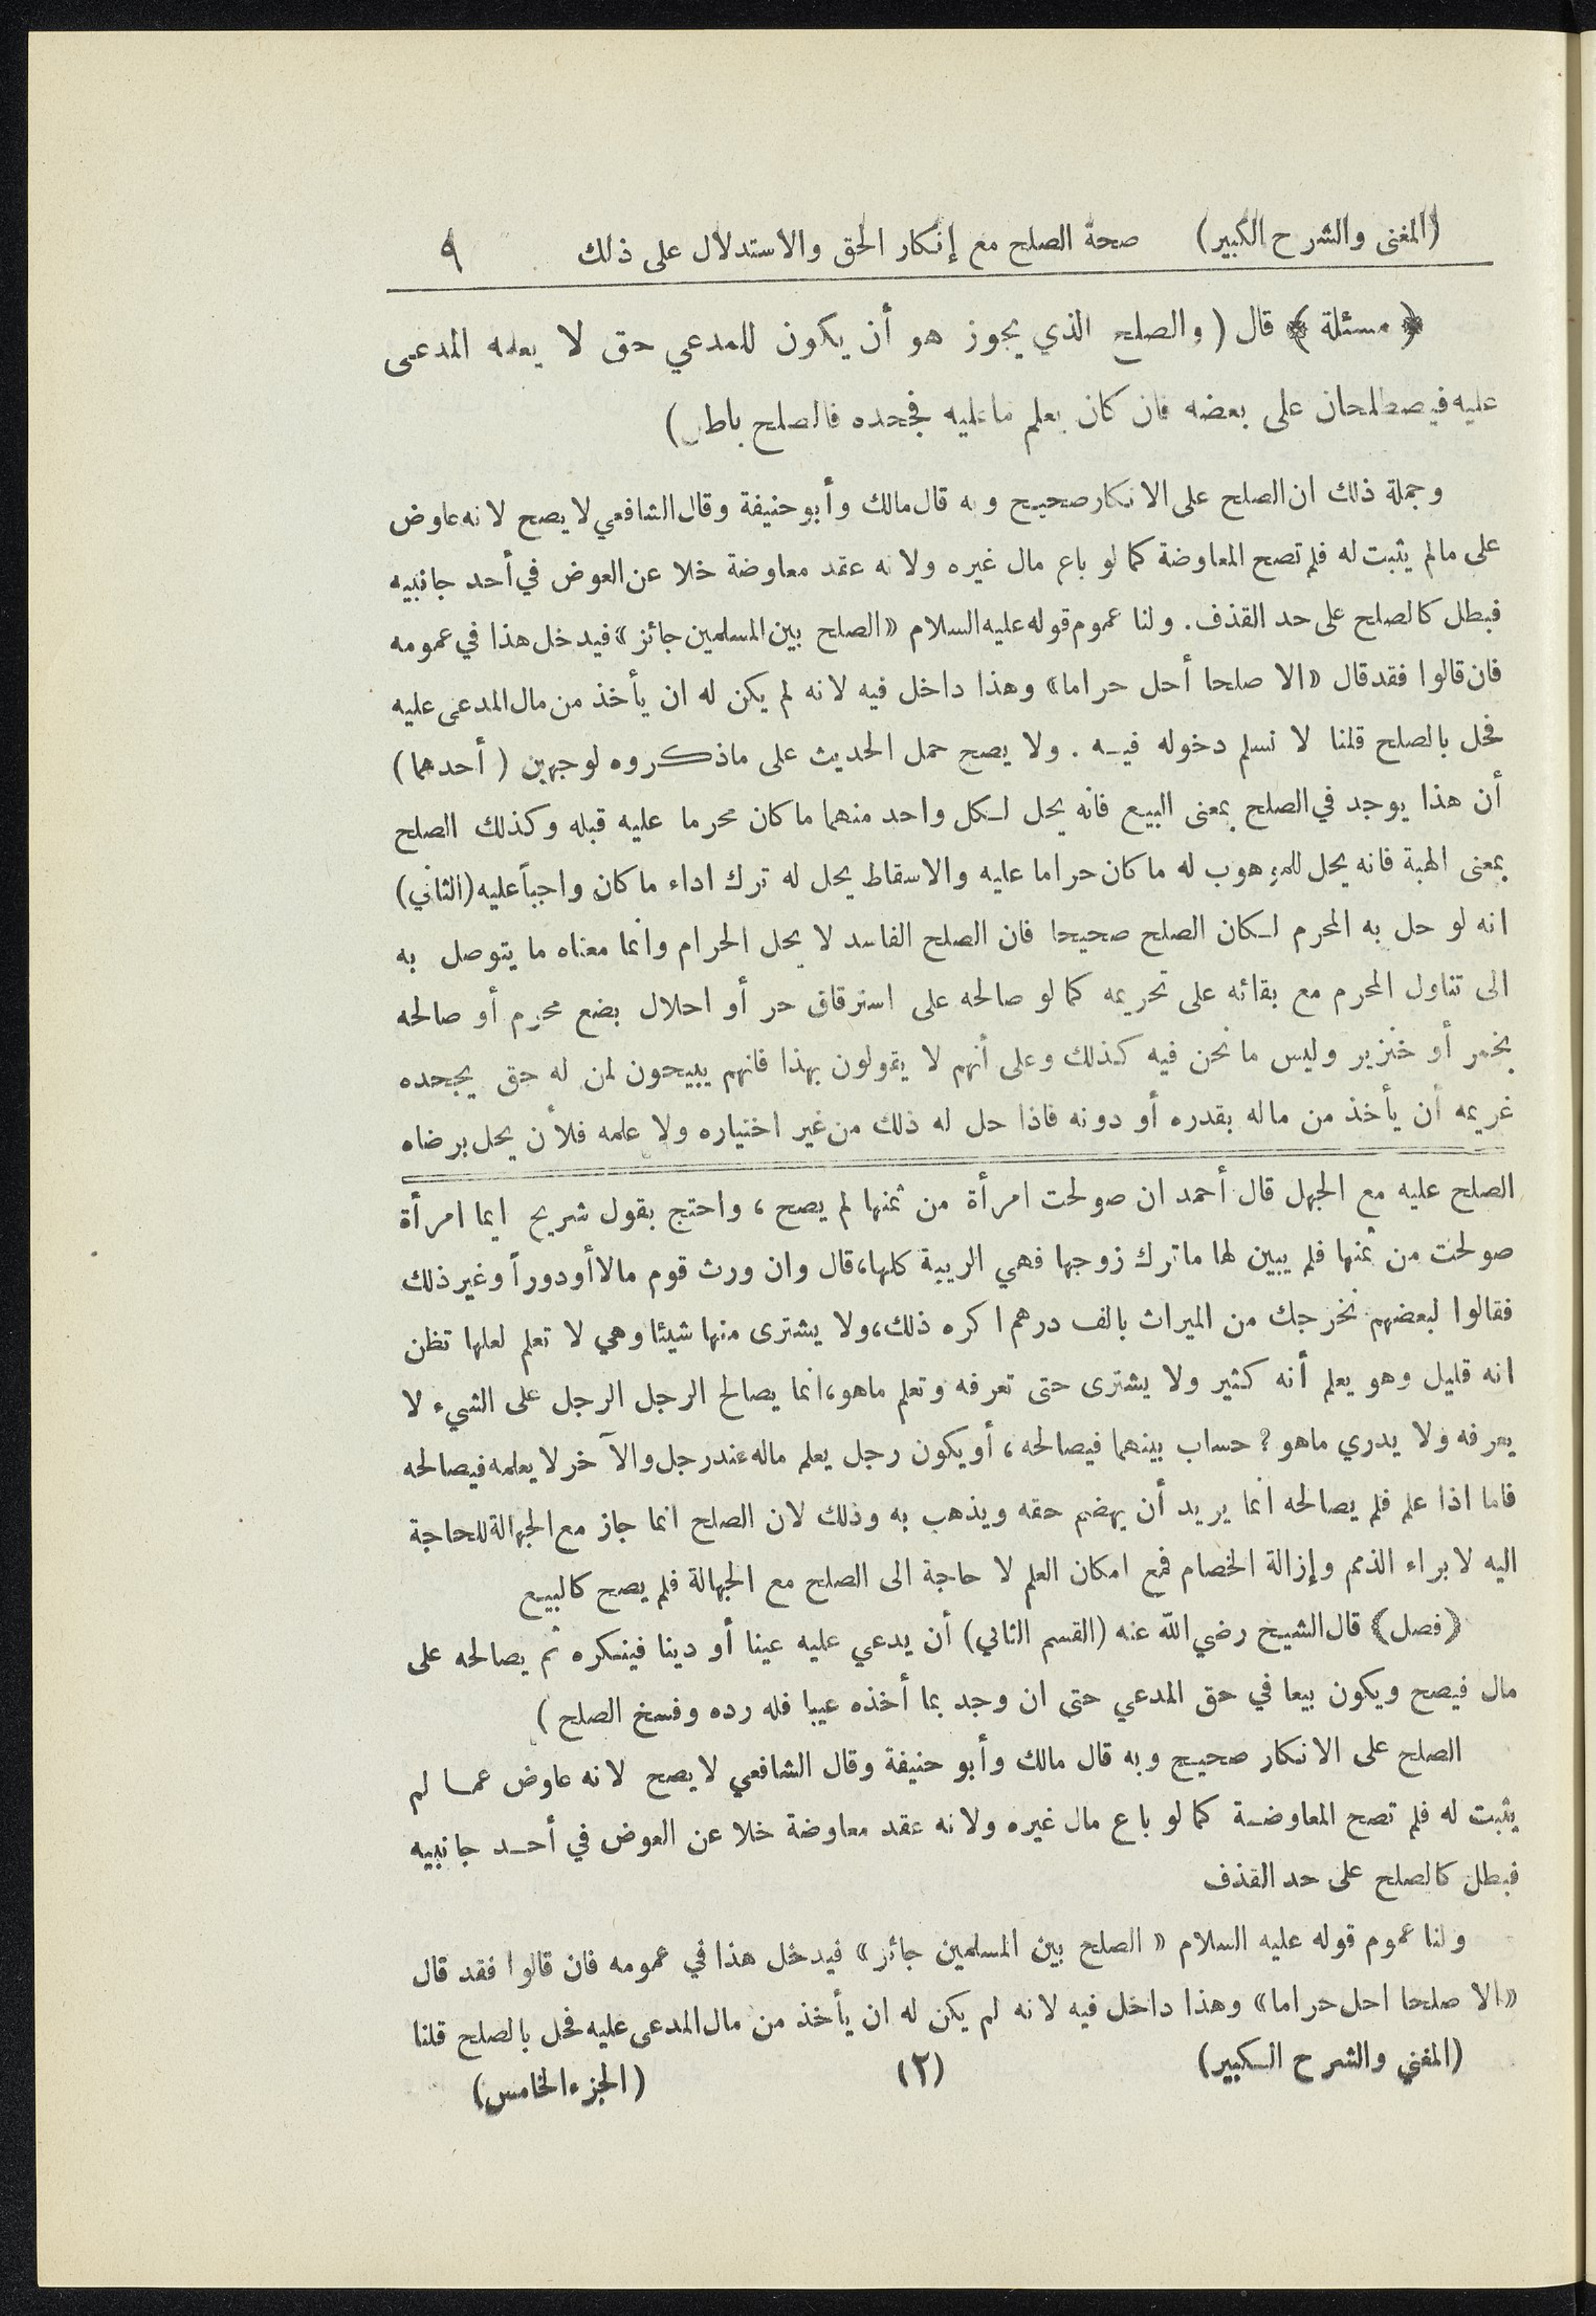 (المغني والشرح الكبير) صحة الصلح مع إنكار الحق والاستدلال على ذلك ٩
﴿ مسئلة ﴾ قال ( والصلح الذي يجوز هو أن يكون للمدعي حق لا يعلمه المدعى
عليه فيصطلحان على بعضه فان كان يعلم ماعليه فجحده فالصلح باطل)
وجملة ذلك ان الصلح على الانكار صحيح وبه قال مالك وأبو حنيفة وقال الشافعي لا يصح لانه عاوض
على مالم يثبت له فلم تصح المعاوضة كما لو باع مال غيره ولانه عقد معاوضة خلا عن العوض في أحد جانبيه
فبطل كالصلح على حد القذف. ولنا عموم قوله عليه السلام «الصلح بين المسلمين جائز» فيدخل هذا في عمومه
فان قالوا فقد قال «الا صلحا أحل حراما» وهذا داخل فيه لانه لم يكن له ان يأخذ من مال المدعى عليه
فحل بالصلح قلنا لا نسلم دخوله فيه . ولا يصح حمل الحديث على ماذكروه لوجهين ( أحدهما)
أن هذا يوجد في الصلح بمعنى البيع فانه يحل لكل واحد منهما ما كان محرما عليه قبله وكذلك الصلح
بمعنى الهبة فانه يحل للموهوب له ما كان حراما عليه والاسقاط يحل له ترك اداء ما كان واجباً عليه (الثاني)
انه لو حل به المحرم لكان الصلح صحيحا فان الصلح الفاسد لا يحل الحرام وانما معناه ما يتوصل به
الى تناول المحرم مع بقائه على تحريمه كما لو صالحه على استرقاق حر أو احلال بضع محرم أو صالحه
بخمر أو خنزير وليس ما نحن فيه كذلك وعلى أنهم لا يقولون بهذا فانهم يبيحون لمن له حق يجحده
غريمه أن يأخذ من ماله بقدره أو دونه فاذا حل له ذلك من غير اختياره ولا علمه فلأن يحل برضاه
الصلح عليه مع الجهل قال أحمد ان صولحت امرأة من ثمنها لم يصح ، واحتج بقول شريح ايما امرأة
صولحت من ثمنها فلم يبين لها ما ترك زوجها فهي الريبة كلها، قال وان ورث قوم مالا أو دوراً وغير ذلك
فقالوا لبعضهم نخرجك من الميراث بالف درهم اكره ذلك، ولا يشترى منها شيئا وهي لا تعلم لعلها تظن
انه قليل وهو يعلم أنه كثير ولا يشترى حتى تعرفه وتعلم ماهو، انما يصالح الرجل الرجل على الشيء لا
يعرفه ولا يدري ماهو ? حساب بينهما فيصالحه ، أو يكون رجل يعلم ماله عند رجل والآخر لا يعلمه فيصالحه
فاما اذا علم فلم يصالحه انما يريد أن يهضم حقه ويذهب به وذلك لان الصلح انما جاز مع الجهالة للحاجة
اليه لابراء الذمم وإزالة الخصام فمع امكان العلم لا حاجة الى الصلح مع الجهالة فلم يصح كالبيع
﴿فصل﴾ قال الشيخ رضي الله عنه (القسم الثاني) أن يدعي عليه عينا أو دينا فينكره ثم يصالحه على
مال فيصح ويكون بيعا في حق المدعي حتى ان وجد بما أخذه عيبا فله رده وفسخ الصلح )
الصلح على الانكار صحيح وبه قال مالك وأبو حنيفة وقال الشافعي لا يصح لانه عاوض عما لم
يثبت له فلم تصح المعاوضة كما لو باع مال غيره ولانه عقد معاوضة خلا عن العوض في أحد جانبيه
فبطل كالصلح على حد القذف
ولنا عموم قوله عليه السلام « الصلح بين المسلمين جائز» فيدخل هذا في عمومه فان قالوا فقد قال
«الا صلحا احل حراما» وهذا داخل فيه لانه لم يكن له ان يأخذ من مال المدعى عليه فحل بالصلح قلنا
(المغني والشرح الكبير) (٢) (الجزء الخامس)